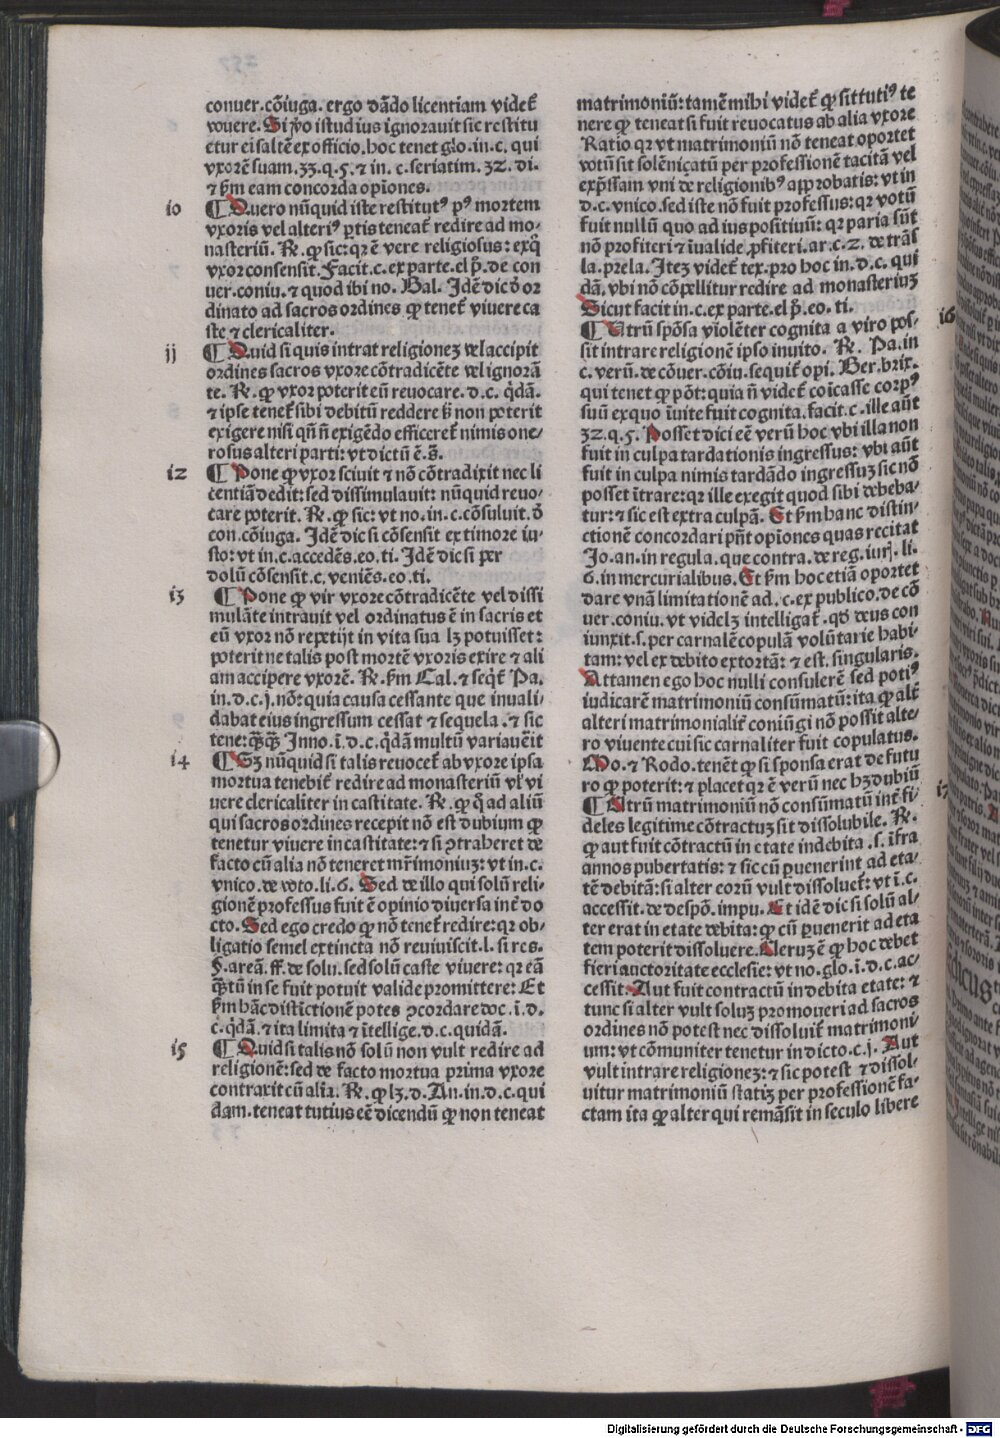 conuer.cõiuga. ergo dãdo licentiam videt̃
vouere. Si ṽo istud ius ignorauit sic restitu
etur ei saltẽ ex officio. hoc tenet glo. in. c. qui
vxorẽ suam. 33. q. 5. ⁊ in. c. seriatim. 32. di.
⁊ ẜm eam concorda opiones.
10 ¶ Quero nũquid iste restitutꝰ pꝰ mortem
vxoris vel alteriꝰ ꝑtis teneat̃ redire ad mo-
nasteriũ. R̃. ꝙ sic: qꝛ ẽ vere religiosus: ex q̃
vxor consensit. Facit. c. ex parte. el p̃. de con
uer. coniu. ⁊ quod ibi no. Bal. Idẽ dic d̃ or
dinato ad sacros ordines ꝙ tenet̃ viuere ca
ste ⁊ clericaliter.
11 ¶ Quid si quis intrat religioneꝫ vel accipit
ordines sacros vxore cõtradicẽte vel ignorã
te. R̃. ꝙ vxor poterit eũ reuocare. d. c. q̃dã.
⁊ ipse tenet̃ sibi debitũ reddere ẜꝫ non poterit
exigere nisi qñ ñ exigẽdo efficeret̃ nimis one/
rosus alteri parti: vt dictũ ẽ. s̃.
12 ¶ Pone ꝙ vxor sciuit ⁊ nõ cõtradixit nec li
centiã dedit: sed dissimulauit: nũquid reuo-
care poterit. R̃. ꝙ sic: vt no. in. c. cõsuluit. d̃
con. cõiuga. Idẽ dic si cõsensit ex timore iu-
sto: vt in. c. accedẽs. eo. ti. Idẽ dic si per
dolũ cõsensit. c. veniẽs. eo. ti.
13 ¶ Pone ꝙ vir vxore cõtradicẽte vel dissi
mulãte intrauit vel ordinatus ẽ in sacris et
eũ vxor nõ repetijt in vita sua lꝫ potuisset:
poterit ne talis post mortẽ vxoris exire ⁊ ali
am accipere vxorẽ. R̃. ẜm Cal. ⁊ seq̃t̃ Pa.
in. d. c. j. nõ: quia causa cessante que inuali-
dabat eius ingressum cessat ⁊ sequela. ⁊ sic
tene: qꝫ̃qꝫ̃ Inno. ĩ. d. c. q̃dã multũ variauẽit
14 ¶ Sꝫ nũquid si talis reuocet̃ ab vxore ipsa
mortua tenebit̃ redire ad monasteriũ vl̃ vi
uere clericaliter in castitate. R̃. ꝙ q̃ ad aliũ
qui sacros ordines recepit nõ est dubium ꝙ
tenetur viuere in castitate: ⁊ si ꝯtraheret de
facto cũ alia nõ teneret mr̃imoniuꝫ: vt in. c.
vnico. de voto. li. 6. Sed de illo qui solũ reli-
gionẽ professus fuit ẽ opinio diuersa int̃ do
cto. Sed ego credo ꝙ nõ tenet̃ redire: qꝛ ob-
ligatio semel extincta nõ reuiuiscit. l. si res.
§. areã. ff. de solu. sed solũ caste viuere: qꝛ eã
qꝫ̃tũ in se fuit potuit valide promittere: Et
ẜm hãc distictionẽ potes ꝯcordare doc. ĩ. d.
c. q̃dã. ⁊ ita limita ⁊ ĩtellige. d. c. quidã.
15 ¶ Quid si talis nõ solũ non vult redire ad
religionẽ: sed de facto mortua prima vxore
contraxit cũ alia. R̃. ꝙ lꝫ. d. An. in. d. c. qui
dam. teneat tutius eẽ dicendũ ꝙ non teneat
matrimoniũ: tamẽ mihi videt̃ ꝙ sit tutiꝰ te
nere ꝙ teneat si fuit reuocatus ab alia vxore
Ratio qꝛ vt matrimoniũ nõ teneat oportet
votũ sit solẽnicatũ per professionẽ tacitã vel
exp̃ssam vni de religionibꝰ approbatis: vt in
d. c. vnico. sed iste nõ fuit professus: qꝛ votũ
fuit nullũ quo ad ius positiuũ: qꝛ paria sũt
nõ profiteri ⁊ ĩualide ꝓfiteri. ar. c. 2. de trãs
la. prela. Iteꝫ videt̃ tex. pro hoc in. d. c. qui
dã. vbi nõ cõpellitur redire ad monasteriuꝫ
Sicut facit in. c. ex parte. el p̃. eo. ti.
16 ¶ Utrũ spõsa violẽter cognita a viro pos-
sit intrare religionẽ ipso inuito. R̃. Pa. in
c. verũ. de cõuer. cõiu. sequit̃ opi. Ber. brix.
qui tenet ꝙ põt: quia ñ videt̃ coĩcasse corpꝰ
suũ ex quo ĩuite fuit cognita. facit. c. ille aũt
32. q. 5. Posset dici eẽ verũ hoc vbi illa non
fuit in culpa tardationis ingressus: vbi aũt
fuit in culpa nimis tardãdo ingressuꝫ sic nõ
posset ĩtrare: qꝛ ille exegit quod sibi debeba-
tur: ⁊ sic est extra culpã. Et ẜm hanc distin-
ctionẽ concordari pñt opiones quas recitat
Jo. an. in regula. que contra. de reg. iurj. li.
6. in mercurialibus. Et ẜm hoc etiã oportet
dare vnã limitationẽ ad. c. ex publico. de cõ
uer. coniu. vt videlꝫ intelligat̃. qđ deus con
iunxit. s. per carnalẽ copulã volũtarie habi-
tam: vel ex debito extortã: ⁊ est. singularis.
Attamen ego hoc nulli consulerẽ sed potiꝰ
iudicarẽ matrimoniũ consũmatũ: ita ꝙ alt̃
alteri matrimonialit̃ coniũgi nõ possit alte-
ro viuente cui sic carnaliter fuit copulatus.
Mo. ⁊ Rodo. tenẽt ꝙ si sponsa erat de futu
ro ꝙ poterit: ⁊ placet qꝛ ẽ verũ nec hꝫ dubiũ
17 ¶ Utrũ matrimoniũ nõ consũmatũ int̃ fi-
deles legitime cõtractuꝫ sit dissolubile. R̃.
ꝙ aut fuit cõtractũ in etate indebita. s. ĩfra
annos pubertatis: ⁊ sic cũ ꝑuenerint ad eta-
tẽ debitã: si alter eorũ vult dissoluet̃: vt ĩ. c.
accessit. de despõ. impu. Et idẽ dic si solũ al-
ter erat in etate debita: ꝙ cũ ꝑuenerit ad eta
tem poterit dissoluere. Uerũ ẽ ꝙ hoc debet
fieri auctoritate ecclesie: vt no. glo. ĩ. d. c. ac/
cessit: Aut fuit contractũ in debita etate: ⁊
tunc si alter vult soluꝫ promoueri ad sacros
ordines nõ potest nec dissoluit̃ matrimoni/
um: vt cõmuniter tenetur in dicto. c. j. Aut
vult intrare religioneꝫ: ⁊ sic potest ⁊ dissol-
uitur matrimoniũ statiꝫ per professionẽ fa-
ctam ita ꝙ alter qui remãsit in seculo libere
Digitalisierung gefördert durch die Deutsche Forschungsgemeinschaft - DFG